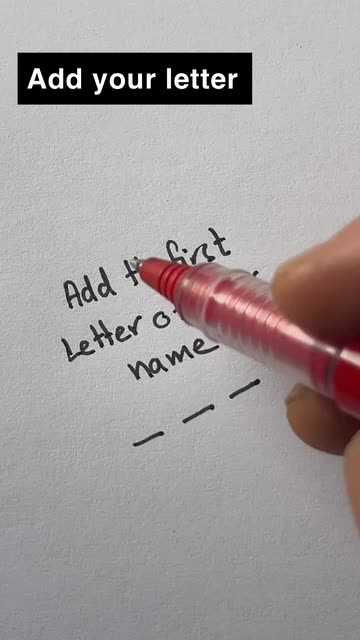 Add your letter
Add first
Letter
name